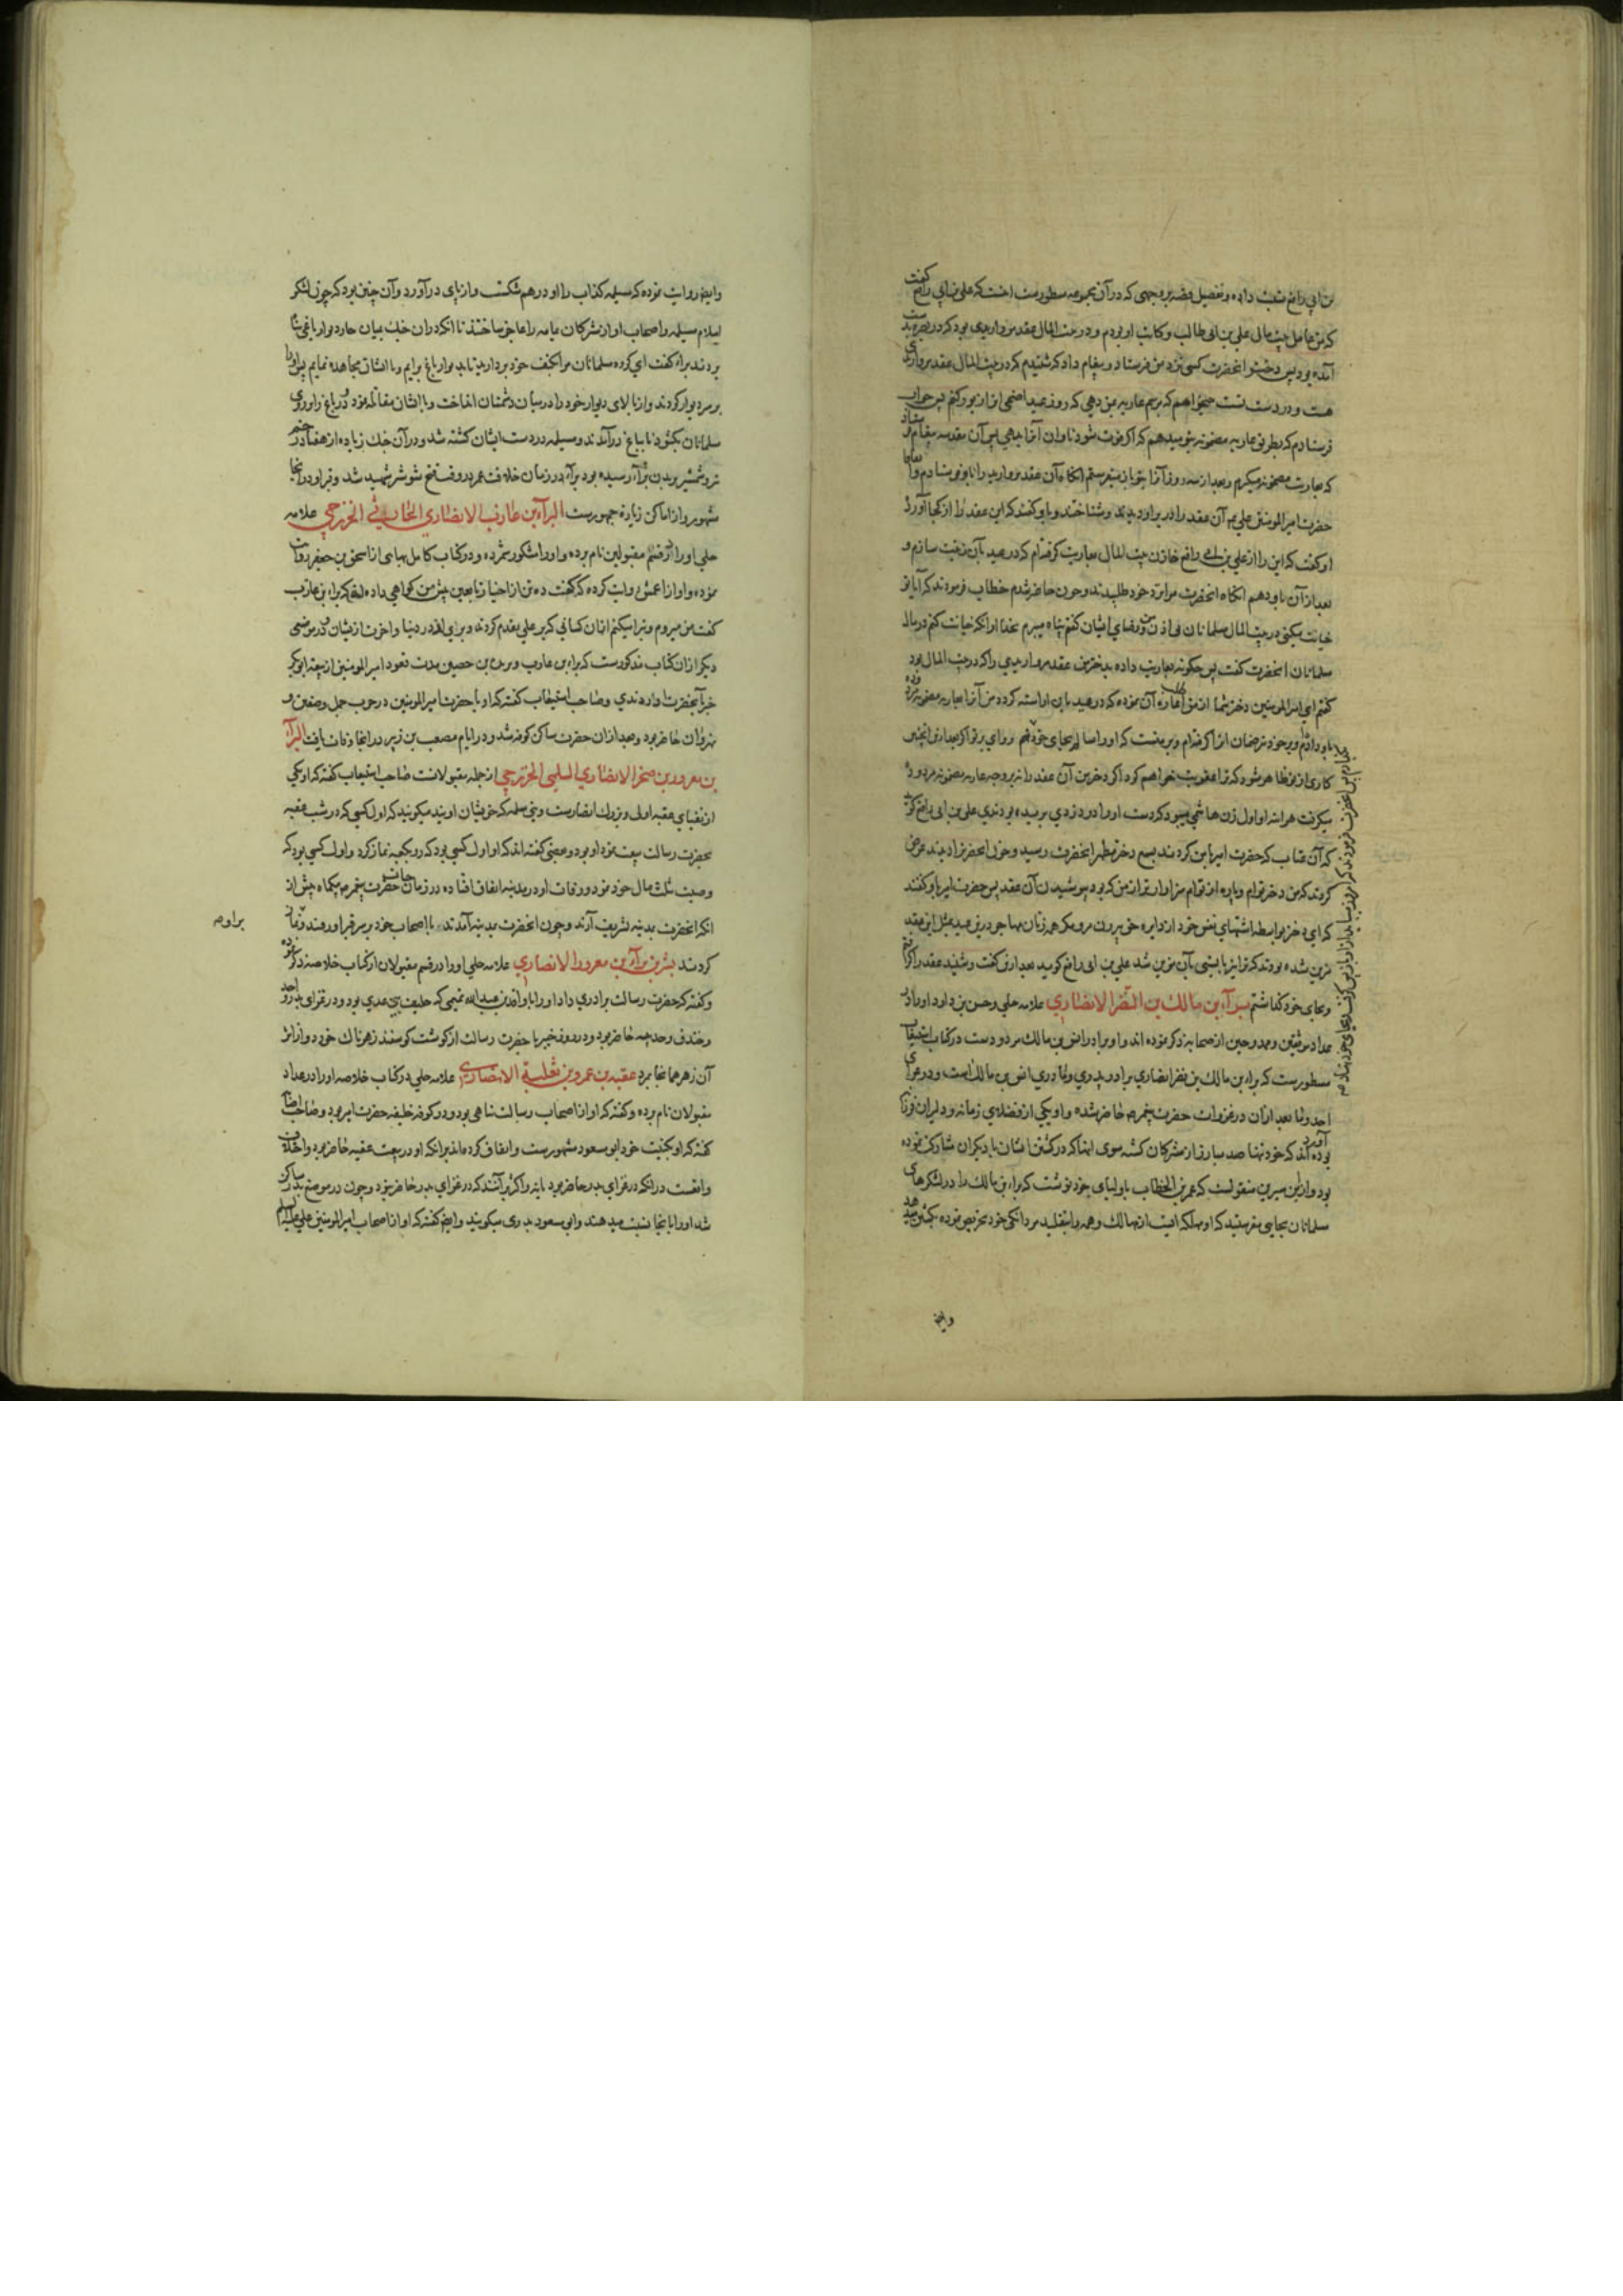 بن ابی رافع نسبت داده و تفصیل قصه بروجهی که در آن مجموعه مسطور ست اینست که علی بن ابی رافع گفت
که من عامل بیت مال علی بن ابی طالب و کاتب او بودم و در بیت المال عقد مرواریدی بود که در بصره بدست
آمده بود پس دختر آنحضرت کسی نزد من فرستاد و پیغام داد که شنیدم که در بیت المال عقد مرواریدی
هست و در دست تست میخواهم که برسم عاریه بمن دهی که روز عید اضحی از آن زیور کنم پس جواب
فرستادم که بطریق عاریه مضمونه بتو میدهم که اگر فوت شود تاوان آنرا بدهی پس آن مقدسه پیغام فرستاد
که بعاریت مضمونه میگیرم و بعد از سه روز آنرا بتو باز میفرستم آنگاه آن عقد مروارید را باو فرستادم و
حضرت امیر المومنین علی آن عقد را در بر او دیدند و شناختند و باو گفتند که این عقد را از کجا آوردی
او گفت که این را از علی بن ابی رافع خازن بیت المال بعاریت گرفته‌ام که در عید بآن زینت سازم و
بعد از آن باو دهم آنگاه آنحضرت مرا نزد خود طلبیدند و چون حاضر شدم خطاب فرمودند که آیا تو
خیانت میکنی در بیت المال مسلمانان بی اذن من و رضای ایشان گفتم پناه میبرم بخدا از آنکه خیانت کنم در مال
مسلمانان آنحضرت گفت پس چگونه بعاریت داده بدختر من عقد مرواریدی را که در بیت المال بود
گفتم ای امیر المومنین دختر شما از من طلب اعاره آن نموده که در عید باین آراسته گردد من آنرا بعاریه مضمونه مردوده
باو دادم و بر خود ضمان آنرا گرفته‌ام و بر منست که او را سالم بجای خود نهم
کاری از تو ظاهر شود که ترا عقوبت خواهم کرد اگر دختر من آن عقد را نه بروجه عاریه مضمونه مردوده
میگرفت هر آینه او اول زن هاشمیه میبود که دست او را در دزدی بریده بودندی علی بن ابی رافع گوید
که آن عتاب که حضرت امیر با من کردند بسمع دختر مطهر آنحضرت رسید و چون آنحضرت را دیدند عرض
کردند که من دختر توام و پاره از توام سزاوارتر از من که بود بپوشیدن آن عقد پس حضرت امیر باو گفتند
که ای دختر بواسطه اشتهای نفس خود از دایره حق بیرون مرو مگر همه زنان مهاجر درین عید بمثل این عقد
مزین شده بودند که ترا نیز بایستی بآن مزین شد علی بن ابی رافع گوید بعد از این گفت و شنید عقد را گرفتم
و بجای خود گذاشتم براء بن مالک بن النضر الانصاری علامه حلی و حسن بن داود او را در
عداد موثقین و ممدوحین از صحابه ذکر نموده اند و او برادر انس بن مالک مردود ست در کتاب استیعاب
مسطور ست که براء بن مالک بن نضر انصاری برادر پدری و مادری انس بن مالک است و در غزای
احد و ما بعد از آن در غزوات حضرت پیغمبر حاضر شده و او یکی از فضلای زمانه و دلیران
بوده اند که خود تنها صد مبارز از مشرکان کشته سوی آنها که در کشتن ایشان با دیگران شرکت نموده
بود و از ابن سیرین منقولست که عمر بن الخطاب باولیای خود نوشت که براء بن مالک را در لشکرهای
مسلمانان بجایی مفرستید که او مهلکه ایست از مهالک و همه را بتقلید مردانگی خود تحریص نموده بکشتن میدهد
وایضا
وایضا روایت نموده که مسیلمه کذاب را او درهم شکست و از پای در آورد و آن چنین بود که چون لشکر
اسلام مسیلمه و اصحاب او از مشرکان یمامه را عاجز ساختند تا آنکه در آن جنگ بمیان چار دیوار باغی پناه
بردند براء گفت ای گروه مسلمانان مرا بکتف خود بردارید تا بدیوار باغ برایم و با ایشان مجاهده نمایم پس او را
بر سر دیوار کردند و از بالای دیوار خود را در میان دشمنان انداخت و با ایشان مقاتله نمود و در باغ را بروی
مسلمانان بگشود تا بباغ در آمدند و مسیلمه در دست ایشان کشته شد و در آن جنگ زیاده از هفتاد زخم
تیر و شمشیر ببدن براء رسیده بود براء در زمان خلافت عمر در فتح شوشتر شهید شد و قبر او در آنجا
مشهور و از اماکن زیاره جمهور ست البراء بن عازب الانصاری الحارثی الخزرجی علامه
حلی او را از قسم مقبولین نام برده و او را مشکور شمرده و در کتاب کامل بهایی از اسحق بن جعفر روایت
نموده و او از اعمش روایت کرده که گفت ده تن از اخیار تابعین پیش من گواهی داده اند که براء بن عازب
گفت من میروم و تبرا میکنم از آن کسانی که بر علی تقدم کردند و بری‌ام از ایشان در دنیا و آخرت و در موضعی
دیگر از آن کتاب مذکور ست که براء بن عازب و بریده بن حصین بعد از قعود امیر المومنین از بیعه ابوبکر
خبر بآنحضرت آوردندی و صاحب استیعاب گفته که او با حضرت امیر المومنین در حرب جمل و صفین و
نهروان حاضر بود و بعد از آن حضرت ساکن کوفه شد و در ایام مصعب بن زبیر در آنجا وفات یافت البراء
بن معرور بن صخر الانصاری السلمی الخزرجی از جمله مقبولانست صاحب استیعاب گفته که او یکی
از نقبای عقبه اولی و بزرگ انصارست و بنی سلمه که خویشان اویند میگویند که اول کسی که در شب عقبه
بحضرت رسالت بیعت نمود او بود و بعضی گفته اند که او اول کسی بود که رو بکعبه نماز کرد و اول کسی بود که
وصیت ثلث مال خود نمود و وفات او در مدینه اتفاق افتاده در زمان حیات حضرت پیغمبر بیکماه پیش از
آنکه آنحضرت بمدینه تشریف آرند و چون آنحضرت بمدینه آمدند با اصحاب خود بر سر قبر او رفتند و نماز
کردند بشر بن براء بن معرور الانصاری علامه حلی او را در قسم مقبولان از کتاب خلاصه ذکر نموده
و گفته که حضرت رسالت برادری داد او را با واقد بن عبدالله تمیمی که حلیف بنی عدی بود و در غزای بدر و احد
و خندق و حدیبیه حاضر بود و در روز خیبر با حضرت رسالت از گوشت گوسفند زهرناک خورد و از اثر
آن زهر همانجا بمرد عقبه بن عمرو بن ثعلبة الانصاری علامه حلی در کتاب خلاصه او را در عداد
مقبولان نام برده و گفته که او از اصحاب رسالت پناهی بود و در کوفه خلیفه حضرت امیر بود و صاحب
گفته که او بکنیت خود ابو مسعود مشهور ست و اتفاق کرده اند بر آنکه او در بیعت عقبه حاضر بود و اختلاف
واقعست در آنکه در غزای بدر حاضر بود یا نه و اکثر بر آنند که در غزای بدر حاضر نبود و چون در موضع بدر ساکن
شد او را بآنجا نسبت میدهند و ابو مسعود بدری میگویند وایضا گفته که او از اصحاب امیر المومنین علی علیه السلام